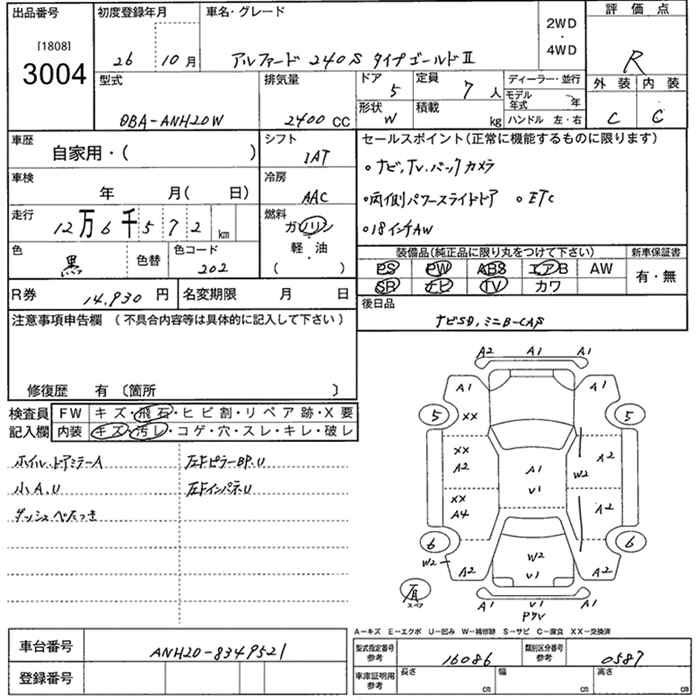 出品番号 初度登録年月 車名・グレード 2WD・4WD 評価点
[1808]
3004 26 10月 アルファード 240S タイプゴールドⅡ R
型式 排気量 ドア 5 定員 7人 ディーラー・並行 外装 内装
DBA-ANH20W 2400 CC 形状 W 積載 kg モデル年式 年 C C
ハンドル 左・右
車歴 自家用・( ) シフト 1AT セールスポイント(正常に機能するものに限ります)
。ナビ,TV.バックカメラ
車検 年 月( 日) 冷房 AAC 。両側パワースライドドア 。ETC
走行 12万6千572km 燃料 ガソリン 。18インチAW
軽・油
( )
色 黒 色替 色コード 202 装備品(純正品に限り丸をつけて下さい) 新車保証書
PS PW ABS エアB AW 有・無
SR ナビ TV カワ
R券 14,930円 名変期限 月 日 後日品
ナビSD,ミニB-CAS
注意事項申告欄 (不具合内容等は具体的に記入して下さい)
修復歴 有〔箇所 〕
検査員記入欄 FW キズ・飛石・ヒビ割・リペア跡・X要
内装 キズ・汚レ・コゲ・穴・スレ・キレ・破レ
ホイル.ドアミラーA 左FピラーBP.U
小A.U 左FインパネU
ダッシュべたつき
A2 A1 A1
A1 A1
5 XX 5
XX A2 A1 A2
W2
XX A4 V1 A2
6 6
W2 A2 W2 A2
V1
スペア A1 V1 A1
A-キズ E-エクボ U-凹み W-補修跡 S-サビ C-腐食 XX-交換済
車台番号 ANH20-8349521 型式指定番号 参考 16086 類別区分番号 参考 0587
登録番号 車庫証明用 参考 長さ cm 幅 cm 高さ cm